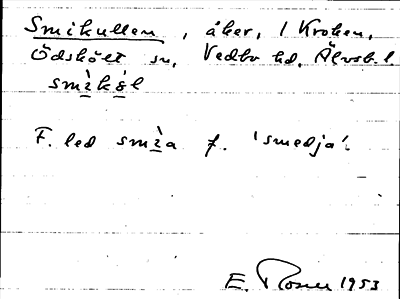 Smikullen, åker, 1 Kroken,
Ödskölt sn, Vedbo hd, Älvsb. l.
smìkə̀l
F. led smìa f. 'smedja'.
E. Rosell 1953